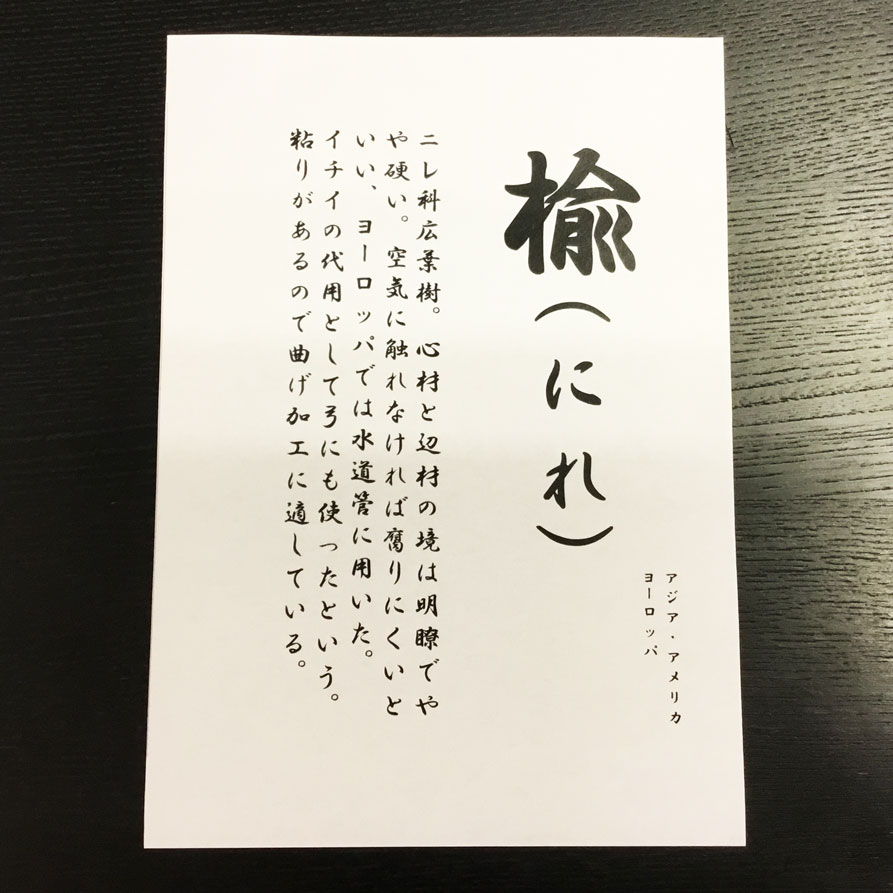 楡（にれ）
アジア・アメリカ
ヨーロッパ
ニレ科広葉樹。心材と辺材の境は明瞭でや
や硬い。空気に触れなければ腐りにくいと
いい、ヨーロッパでは水道管に用いた。
イチイの代用として弓にも使ったという。
粘りがあるので曲げ加工に適している。